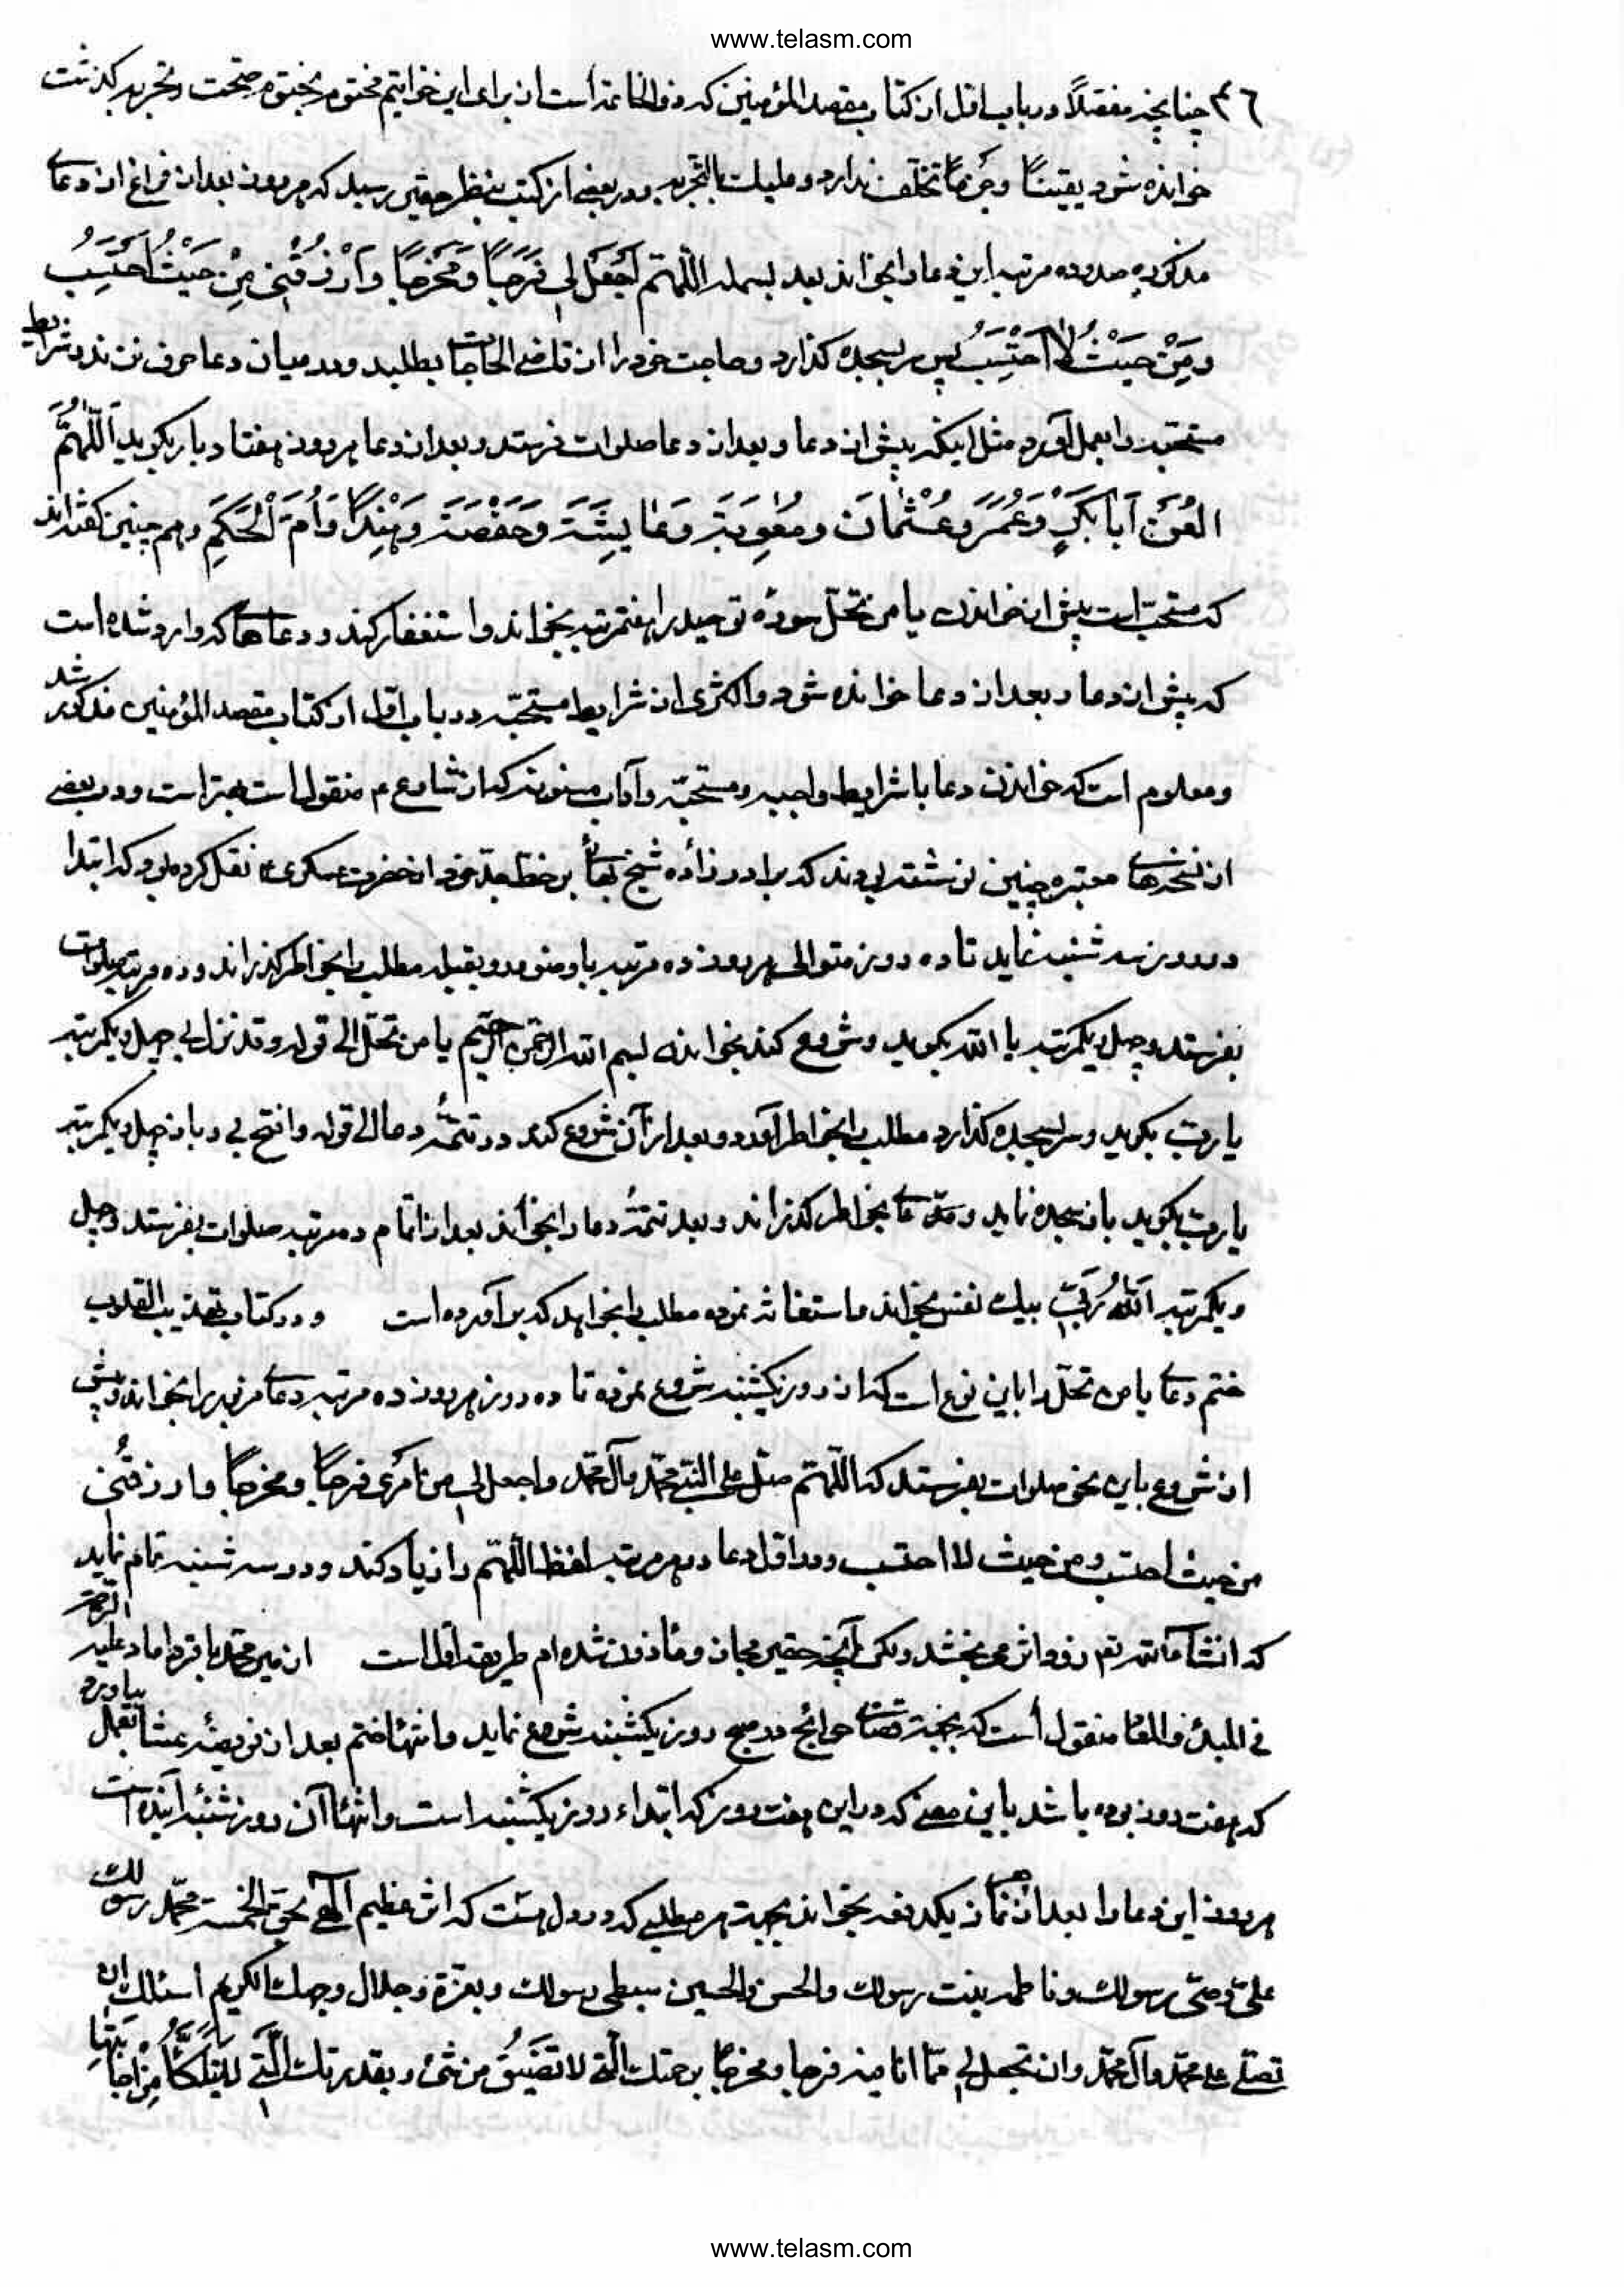 www.telasm.com
۴۶ چنانچه مفصلاً در باب اول از کتاب مقصد المؤمنین که ذو الخاتمه است از برای این خواتیم مختوم بختوم صحت و تجربه گذشت
خوانده شود یقیناً و جزماً تخلف ندارد و علیک بالتجربه و در بعضی از کتب بنظر حقیر رسید که هر روز بعد از فراغ از دعای
مذکوره صد و ده مرتبه این دعا را بخواند بعد بسمله اَللّهُمَّ اجْعَلْ لِی فَرَجًا وَمَخْرَجًا وَارْزُقْنِی مِنْ حَیْثُ اَحْتَسِبُ
وَمِنْ حَیْثُ لا اَحْتَسِبُ پس سر بسجده گذارد و حاجت خود را از قاضی الحاجات بطلبد و در میان دعا حرف نزند و شرایط
مستحبه را بعمل آورد مثل اینکه پیش از دعا و بعد از دعا صلوات فرستد و بعد از دعا هر روز هفتاد بار بگوید اَللّهُمَّ
الْعَنْ اَبابَکْرٍ وَعُمَرَ وَعُثْمانَ وَمُعٰوِیَةَ وَعایِشَةَ وَحَفْصَةَ وَهِنْدًا وَاُمَّ الْحَکَمِ و هم چنین گفته‌اند
که مستحب است پیش از خواندن یا من تحل سوره توحید را هفتمرتبه بخواند و استغفار کند و دعاها که وارد شده است
که پیش از دعا و بعد از دعا خوانده شود و اکثری از شرایط مستحبه در باب اول از کتاب مقصد المؤمنین مذکور شد
و معلوم است که خواندن دعا با شرایط واجبه و مستحبه و آداب مسنونه که از شارع م منقول است بهتر است و در بعضی
از نسخهای معتبره چنین نوشته بودند که برادر زاده شیخ بهائی بر خط جد خود از حضرت عسکری ع نقل کرده بود که ابتدا
در روز سه شنبه نماید تا ده روز متوالی هر روز ده مرتبه با وضو رو بقبله مطلب را بخواطر گذراند و ده مرتبه صلوات
بفرستد و چهل و یکمرتبه یا الله بگوید و شروع کند بخواندن بسم الله الرحمن الرحیم یا من تحل الی قوله و قد نزل بی چهل و یکمرتبه
یا رب بگوید و سر بسجده گذارد مطلب را بخواطر آورد و بعد از آن شروع کند در تتمه دعا الی قوله وافتح لی و باز چهل و یکمرتبه
یا رب بگوید باز سجده نماید و مدعای بخواطر گذراند و بعد تتمه دعا را بخواند بعد از اتمام ده مرتبه صلوات بفرستد و چهل
و یکمرتبه اَللهُ رَبِّی بیک نفس بخواند و استغاثه نموده مطلب را بخواهد که بر آورده است و در کتاب تهذیب القلوب
ختم دعای یا من تحل را باین نوع است که از روز یکشنبه شروع نموده تا ده روز هر روز ده مرتبه دعای مزبور را بخواند و پیش
از شروع باین نحو صلوات بفرستد که اللهم صل علی النبی محمد وآل محمد واجعل لی من امری فرجاً ومخرجاً وارزقنی
من حیث احتسب ومن حیث لا احتسب و در اول دعا در هر مرتبه لفظ اللهم را زیاد کند و در سه شنبه تمام نماید
که انشاء الله تعم زود اثر می بخشد ولیکن آنچه حقیر مجاز و مأذون شده ام طریقه اول است از میر محمد باقر داماد علیه الرحمه
فی المبدء والمعاد منقول است که بجهة قضای حوائج در صبح روز یکشنبه شروع نماید و انتهاء ختم بعد از فریضه عشا بعمل بیاورد
که هفت روز بوده باشد باین معنی که در این هفت روز که ابتداء روز یکشنبه است و انتهاء آن روز شنبه آینده است
هر روز این دعا را بعد از نماز یکدفعه بخواند بجهة هر مطلبی که در دل هست که اثر عظیم الهی بحق الخمسة محمد رسولک
علی وصی رسولک وفاطمه بنت رسولک والحسن والحسین سبطی رسولک وبعزة وجلال وجهک الکریم اسئلک ان
تصلی علی محمد وآل محمد وان تجعل لی مما انا فیه فرجا ومخرجا برحمتک الّتی لا تَضَیَّقُ من شئ وبقدرتک الَّتِی
www.telasm.com